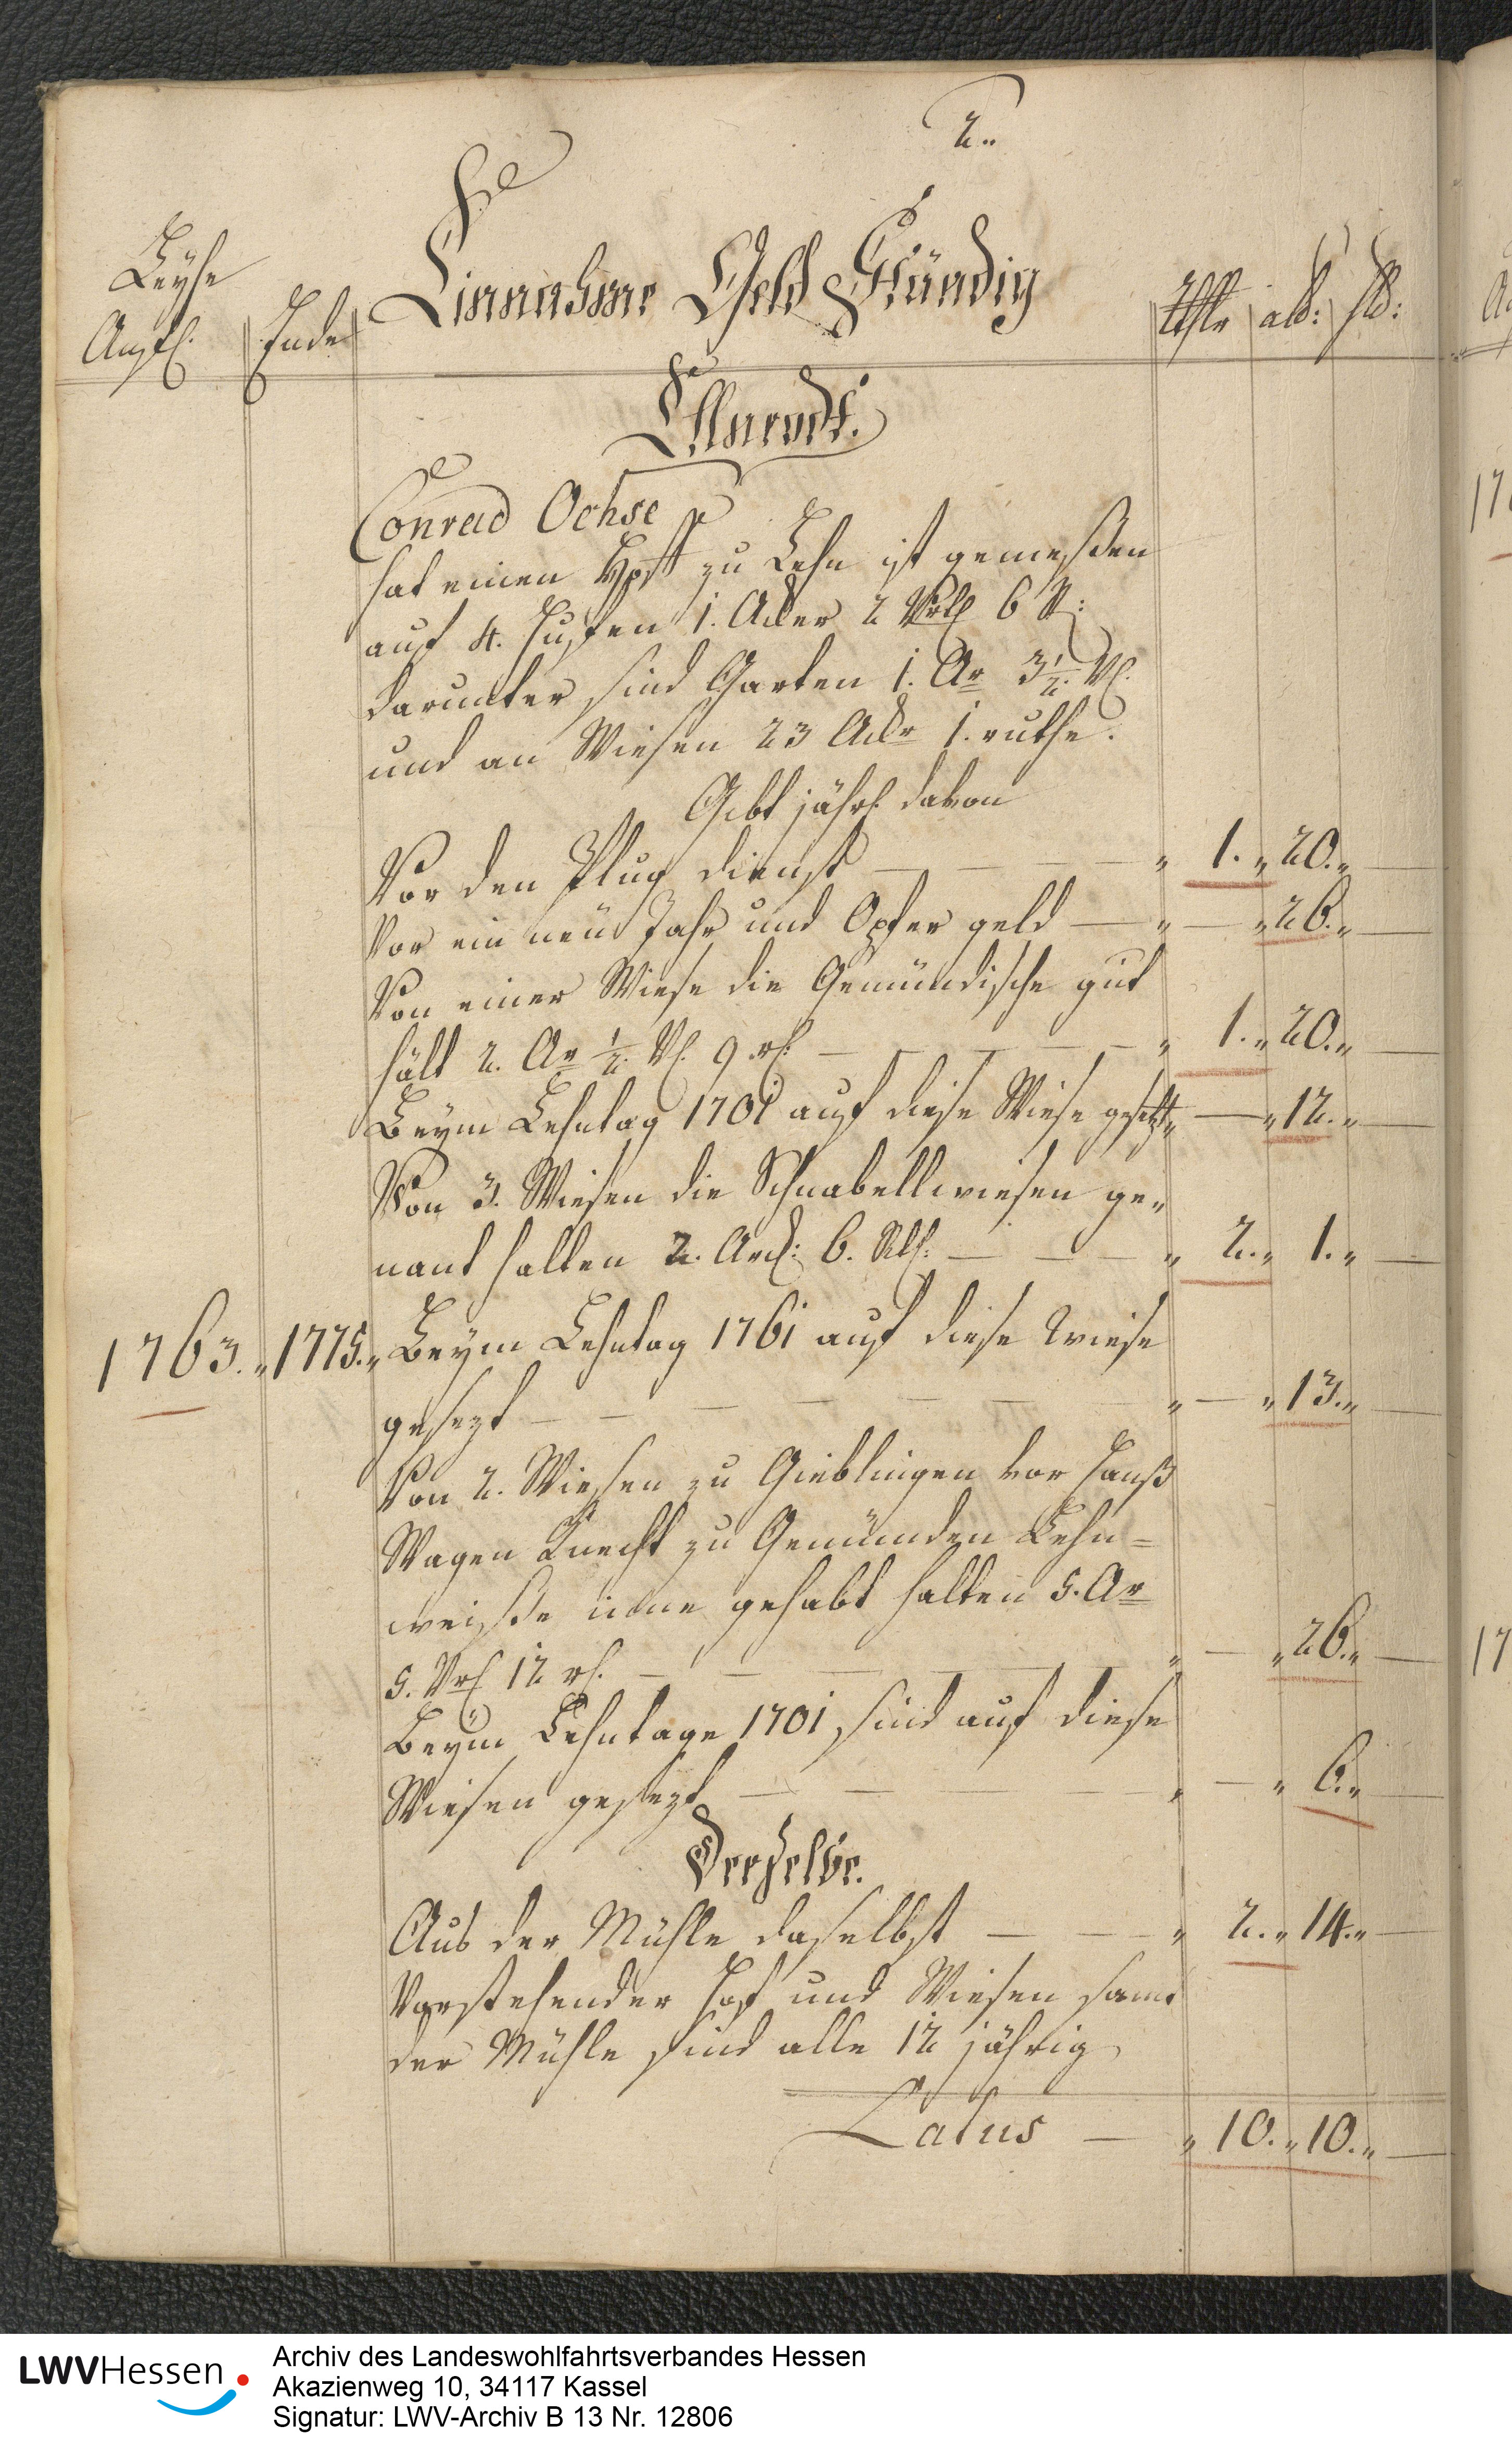 2.
Leyhe
Einnahme Geld Ständig
Anf. Ende Rthlr alb: hlr:
Ellnrode.
Conrad Ochse
hat einen Hoff zu Lehn ist gemeßen
auf 4. Hufen 1. Acker 2 Vrtl 6 R:
darunter sind Garten 1. Ar 3 1/2. V.
und an Wiesen 23 Ackr 1. ruthe.
Gibt jährl. davon
Vor den Plug dienst — — — " 1. " 20. " —
Vor ein neu Jahr und Opfer geld — " — " 26. " —
Von einer Wiese die Gemündische gut
hält 2. Ar 1/2. V. 9. rh. — — — " 1. " 20. " —
Beym Lehntag 1701 auf diese Wiese gesetzt " — " 12. " —
Von 3. Wiesen die Schnabellwiesen ge-
nant halten 2. Ack: 6. Rth. — — — " 2. " 1. " —
1763. " 1775. " Beym Lehntag 1761 auf diese Wiese
gesezt — — — — — " — " 13. " —
Von 2. Wiesen zu Gieblingen vor Hanß
Wagen Knecht zu Gemünden Lehn=
weiße inne gehabt halten 5. Ar
5. Vrt 12 rh. — — — — " — " 26. " —
Beym Lehntage 1701 sind auf diese
Wiesen gesezt — — — " — " 6. " —
Derselbe.
Aus der Mühle daselbst — — " 2. " 14. " —
Vorstehender Hof und Wiesen samt
der Mühle sind alle 12 jährig
Latus — " 10. " 10. " —
LWVHessen
Archiv des Landeswohlfahrtsverbandes Hessen
Akazienweg 10, 34117 Kassel
Signatur: LWV-Archiv B 13 Nr. 12806